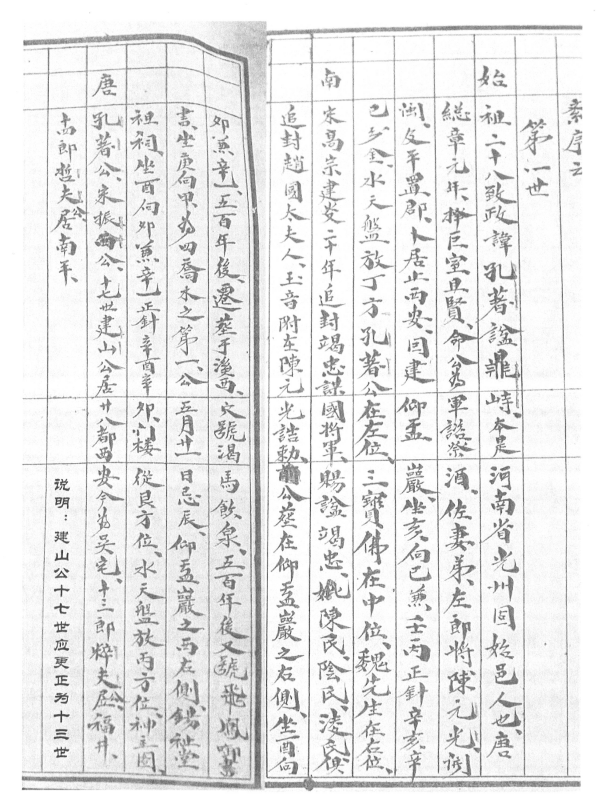 序云
第一世
始祖二十八致政諱孔著諡 峙本是河南省光州固始邑人也、唐
總章元年、擇巨室且賢、命公為軍諮祭酒、佐妻弟左郎將陳元光
閩、反平置郡、卜居止西安、因建仰盂巖、坐亥、向巳兼壬丙正針辛亥、辛
巳分金、水天盤放丁方孔著公在左位、三寶佛在中位、魏先生在右位、
南宋高宗建炎二十年追封竭忠謀國將軍、賜諡竭忠、妣陳氏、陰氏、凌氏俱
追封趙國太夫人、玉音附在陳元光誥勅、公葬在仰盂巖之右側、坐酉向
卯兼辛乙、五百年後、遷葬于溪西、文號渴馬飲泉、五百年後又號飛鳳啣
書、坐庚向甲、為四喬木之第一、公五月廿一日忌辰、仰盂巖之西右側、錫祉堂
祖祠、坐酉向卯兼辛乙正針辛酉辛卯、小樓從艮方位、水天盤放丙方位、神主
唐孔著公、宋振西公、十七世建山公居廿八都西安今為吳宅、十三郎粹夫公居福井、
十四郎哲夫公居南羊、
说明：建山公十七世应更正为十三世